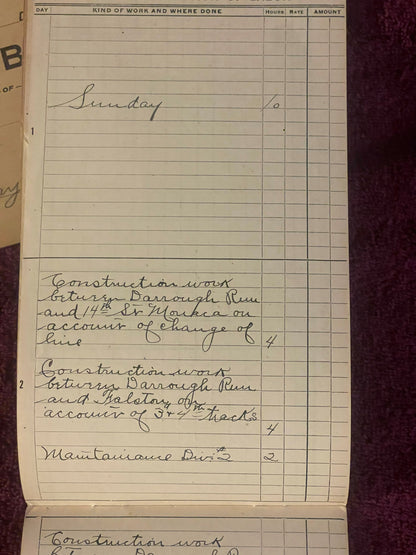 DAY KIND OF WORK AND WHERE DONE HOURS RATE AMOUNT
B
OF
ay
Sunday 10
1
Construction work
between Darrough Run
and 14th St. Monaca on
account of change of
line 4
2
Construction work
between Darrough Run
and Falston on
account of 3 & 4th tracks
4
Maintainance Div. 2 2
Construction work